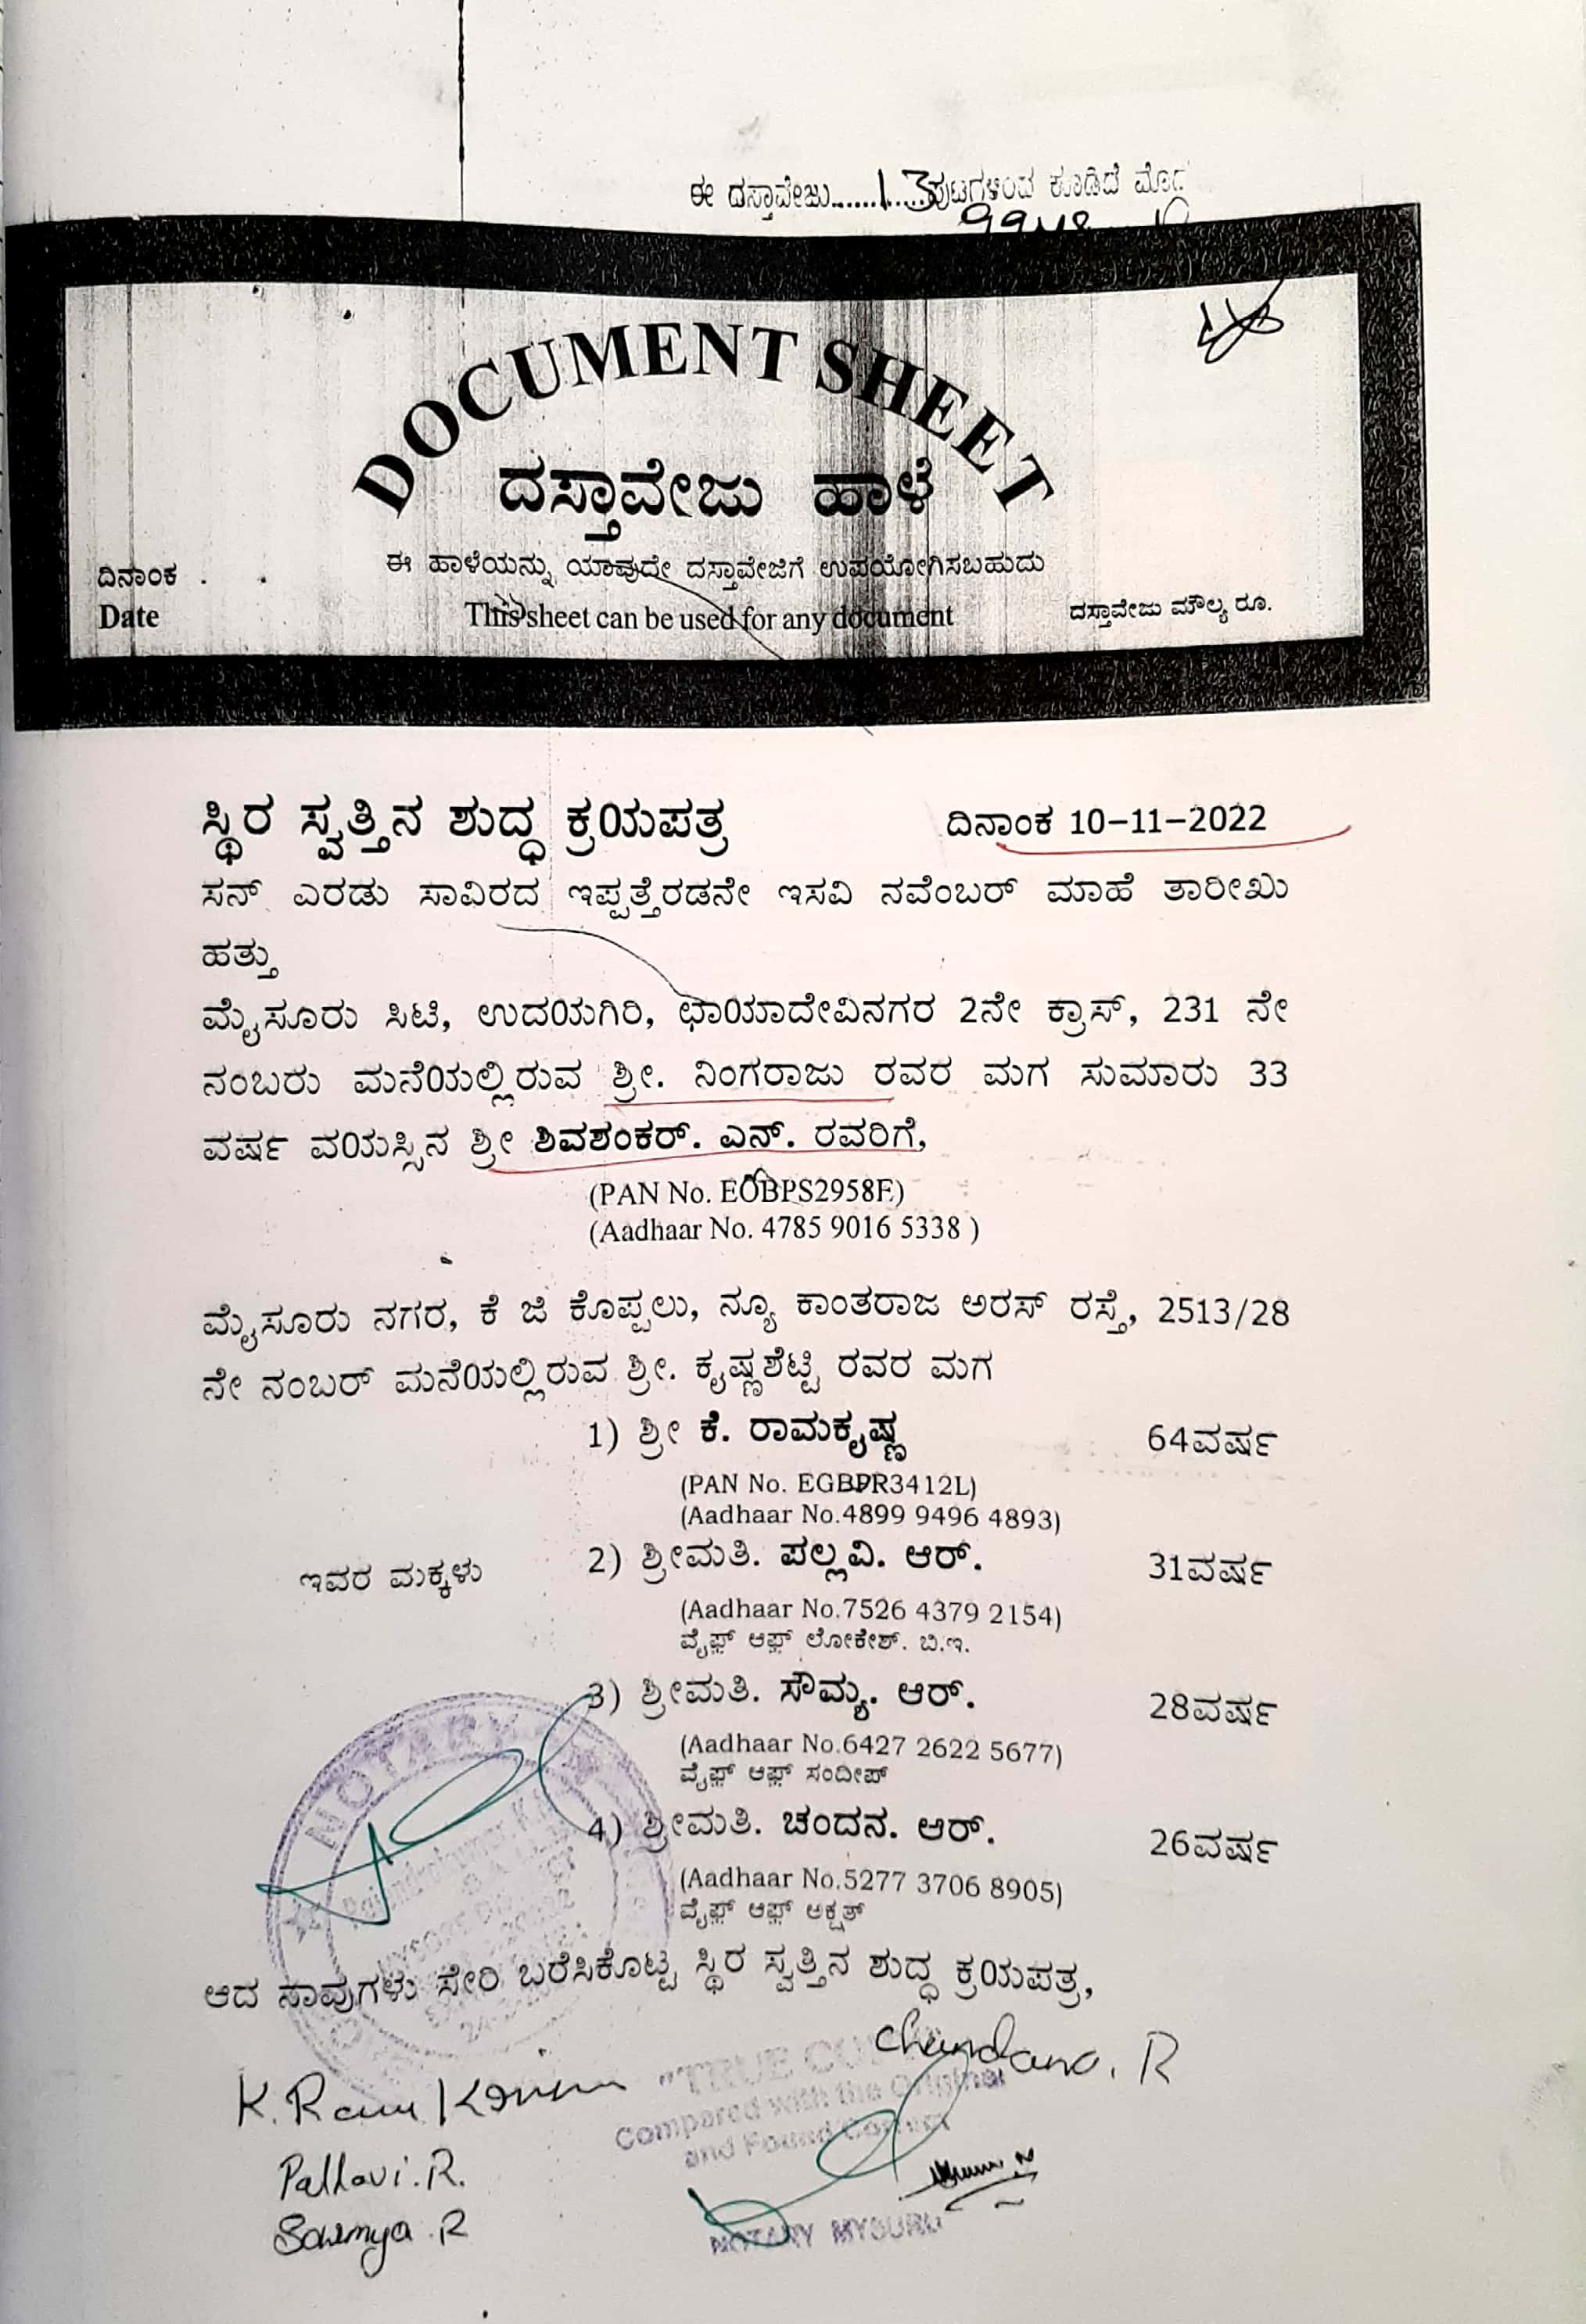 ಈ ದಸ್ತಾವೇಜು.......13ಪುಟಗಳಿಂದ ಕೂಡಿದೆ
DOCUMENT SHEET
ದಸ್ತಾವೇಜು ಹಾಳೆ
ಈ ಹಾಳೆಯನ್ನು ಯಾವುದೇ ದಸ್ತಾವೇಜಿಗೆ ಉಪಯೋಗಿಸಬಹುದು
ದಿನಾಂಕ
Date
This sheet can be used for any document
ದಸ್ತಾವೇಜು ಮೌಲ್ಯ ರೂ.
ಸ್ಥಿರ ಸ್ವತ್ತಿನ ಶುದ್ಧ ಕ್ರಯಪತ್ರ ದಿನಾಂಕ 10-11-2022
ಸನ್ ಎರಡು ಸಾವಿರದ ಇಪ್ಪತ್ತೆರಡನೇ ಇಸವಿ ನವೆಂಬರ್ ಮಾಹೆ ತಾರೀಖು
ಹತ್ತು
ಮೈಸೂರು ಸಿಟಿ, ಉದಯಗಿರಿ, ಛಾಯಾದೇವಿನಗರ 2ನೇ ಕ್ರಾಸ್, 231 ನೇ
ನಂಬರು ಮನೆಯಲ್ಲಿರುವ ಶ್ರೀ. ನಿಂಗರಾಜು ರವರ ಮಗ ಸುಮಾರು 33
ವರ್ಷ ವಯಸ್ಸಿನ ಶ್ರೀ ಶಿವಶಂಕರ್. ಎನ್. ರವರಿಗೆ,
(PAN No. EOBPS2958F)
(Aadhaar No. 4785 9016 5338 )
ಮೈಸೂರು ನಗರ, ಕೆ ಜಿ ಕೊಪ್ಪಲು, ನ್ಯೂ ಕಾಂತರಾಜ ಅರಸ್ ರಸ್ತೆ, 2513/28
ನೇ ನಂಬರ್ ಮನೆಯಲ್ಲಿರುವ ಶ್ರೀ. ಕೃಷ್ಣಶೆಟ್ಟಿ ರವರ ಮಗ
1) ಶ್ರೀ ಕೆ. ರಾಮಕೃಷ್ಣ 64ವರ್ಷ
(PAN No. EGBPR3412L)
(Aadhaar No.4899 9496 4893)
ಇವರ ಮಕ್ಕಳು 2) ಶ್ರೀಮತಿ. ಪಲ್ಲವಿ. ಆರ್. 31ವರ್ಷ
(Aadhaar No.7526 4379 2154)
ವೈಫ್ ಆಫ್ ಲೋಕೇಶ್. ಬಿ.ಇ.
3) ಶ್ರೀಮತಿ. ಸೌಮ್ಯ. ಆರ್. 28ವರ್ಷ
(Aadhaar No.6427 2622 5677)
ವೈಫ್ ಆಫ್ ಸಂದೀಪ್
4) ಶ್ರೀಮತಿ. ಚಂದನ. ಆರ್. 26ವರ್ಷ
(Aadhaar No.5277 3706 8905)
ವೈಫ್ ಆಫ್ ಅಕ್ಷತ್
NOTARY
ಆದ ನಾವುಗಳು ಸೇರಿ ಬರೆಸಿಕೊಟ್ಟ ಸ್ಥಿರ ಸ್ವತ್ತಿನ ಶುದ್ಧ ಕ್ರಯಪತ್ರ,
Chandana. R
K. Ram Krishna
"TRUE COPY"
Compared with the Original
and Found Correct
Pallavi. R.
Sowmya. R
NOTARY MYSURU